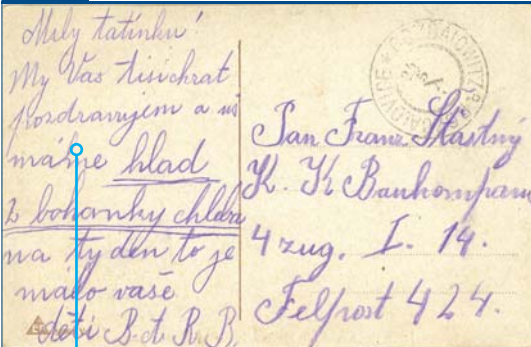 Milý tatínku!
My Vas tisíckrat
pozdravujem a už
máme hlad
2 bohanky chleba
na tyden to je
málo vaše
děti B. d. R. B.
Pan Franz Štastný
K. K Baukompani
4 zug. I. 14.
Felpost 424.